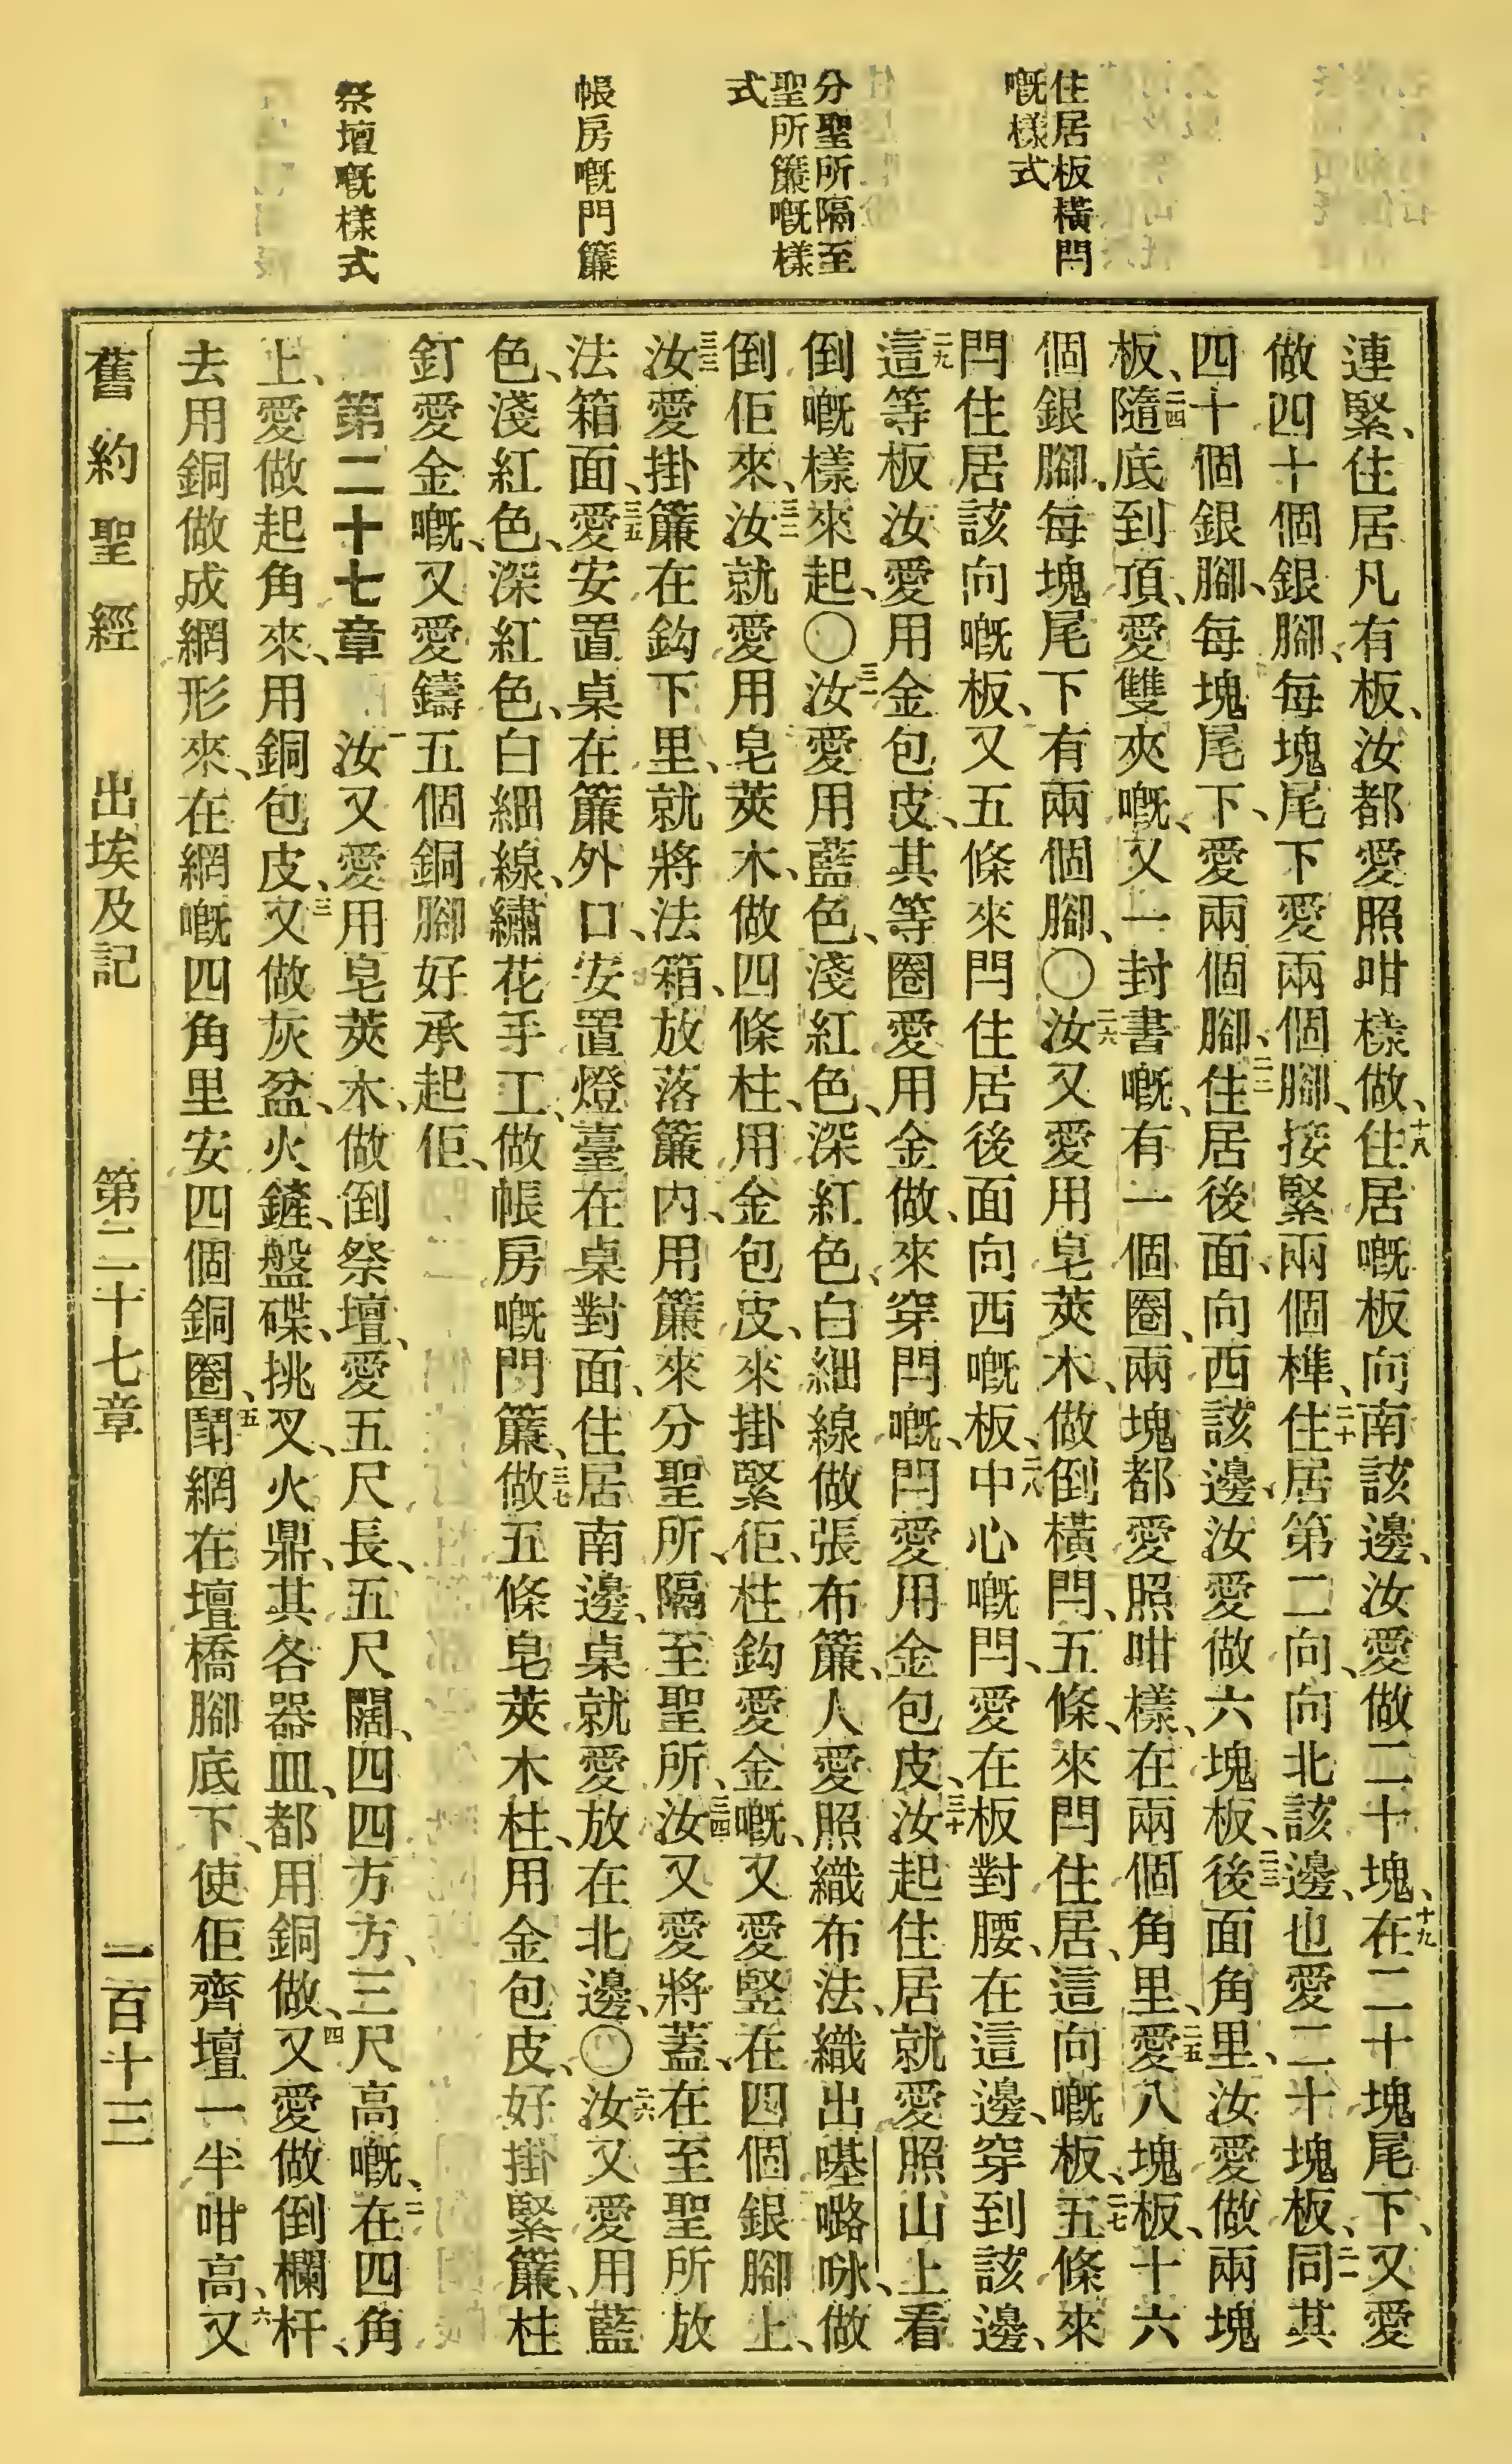 住居板橫閂
嘅樣式
分聖所隔至
聖所簾嘅樣
式
帳房嘅門簾
祭壇嘅樣式
連緊、住居凡有板、汝都愛照咁樣做、十八住居嘅板向南該邊、汝愛做二十塊、十九在二十塊尾下、又愛
做四十個銀腳、每塊尾下愛兩個腳、接緊兩個榫、二十住居第二向、向北該邊、也愛二十塊板、二一同其
四十個銀腳、每塊尾下、愛兩個腳、二二住居後面、向西該邊、汝愛做六塊板、二三後面角里、汝愛做兩塊
板、二四隨底到頂、愛雙夾嘅、又一封書嘅、有一個圈、兩塊都愛照咁樣、在兩個角里、二五愛八塊板、十六
個銀腳、每塊尾下有兩個腳、〇二六汝又愛用皂莢木、做倒橫閂、五條、來閂住居、這向嘅板、二七五條來
閂住居該向嘅板、又五條來閂住居後面向西嘅板、二八中心嘅閂、愛在板對腰、在這邊、穿到該邊、
二九這等板汝愛用金包皮、其等圈愛用金做、來穿閂嘅、閂愛用金包皮、三十汝起住居就愛照山上看
倒嘅樣來起、〇三一汝愛用藍色、淺紅色、深紅色、白細線做張布簾、人愛照織布法、織出𠼻嚕咏、做
倒佢來、三二汝就愛用皂莢木、做四條柱、用金包皮、來掛緊佢、柱鈎愛金嘅、又愛竪在四個銀腳上、
三三汝愛掛簾在鈎下里、就將法箱、放落簾內、用簾來分聖所、隔至聖所、三四汝又愛將蓋、在至聖所放
法箱面、三五愛安置桌在簾外口、安置燈臺在桌對面、住居南邊、桌就愛放在北邊、〇三六汝又愛用藍
色、淺紅色、深紅色、白細線、繡花手工、做帳房嘅門簾、三七做五條皂莢木柱、用金包皮、好掛緊簾、柱
釘愛金嘅、又愛鑄五個銅腳好承起佢、
第二十七章 一汝又愛用皂莢木、做倒祭壇、愛五尺長、五尺闊、四四方方、三尺高嘅、二在四角
上、愛做起角來、用銅包皮、三又做灰盆、火鏟、盤碟、挑叉、火鼎、其各器皿、都用銅做、四又愛做倒欄杆、
去用銅做成網形來、在網嘅四角里安四個銅圈、五鬧網在壇橋腳底下、使佢齊壇一半咁高、六又
舊約聖經 出埃及記 第二十七章 一百十三